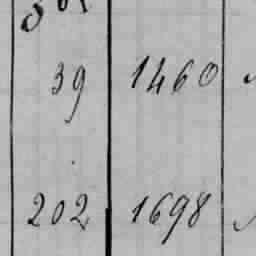 39 1460
202 1698